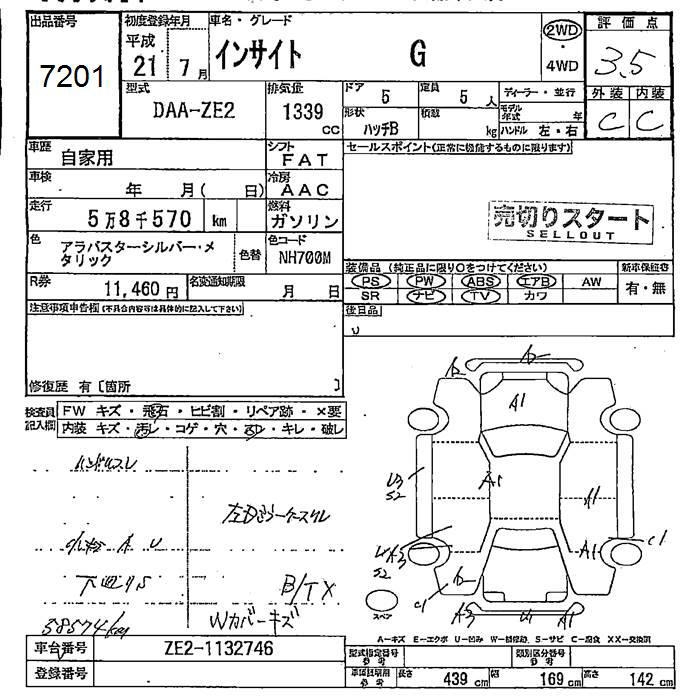 出品番号
7201
初度登録年月
平成
21 7月
車名・グレード
インサイト G
2WD
・
4WD
評価点
3.5
外装 内装
C C
型式
DAA-ZE2
排気量
1339
cc
ドア
5
定員
5 人
形状
ハッチB
積載
kg
ディーラー・並行
モデル年式 年
ハンドル 左・右
車歴
自家用
シフト
FAT
車検
年 月( 日)
冷房
AAC
走行
5万8千570 km
燃料
ガソリン
色
アラバスターシルバー・メタリック
色替
色コード
NH700M
R券
11,460 円
名変通知期限
月 日
セールスポイント(正常に機能するものに限ります)
売切りスタート
SELLOUT
装備品 (純正品に限り○をつけてください)
新車保証書
PS PW ABS エアB AW
SR ナビ TV カワ
有・無
後日品
注意事項申告欄(不具合内容等は具体的に記入して下さい)
修復歴 有〔箇所 〕
検査員記入欄
FW キズ・飛石・ヒビ割・リペア跡・×要
内装 キズ・汚レ・コゲ・穴・・キレ・破レ
ハンドルスレ
A U
下廻りS
B/TX
Wカバーキズ
58574km
A1
A1
A1
A1
U3
S2
A3
S2
C1
C1
A3
A1
スペア
A−キズ E−エクボ U−凹み W−補修跡 S−サビ C−腐食 XX−交換済
車台番号
ZE2-1132746
登録番号
型式指定番号
参考
類別区分番号
参考
車両諸元
参考
長さ 439 cm 幅 169 cm 高さ 142 cm